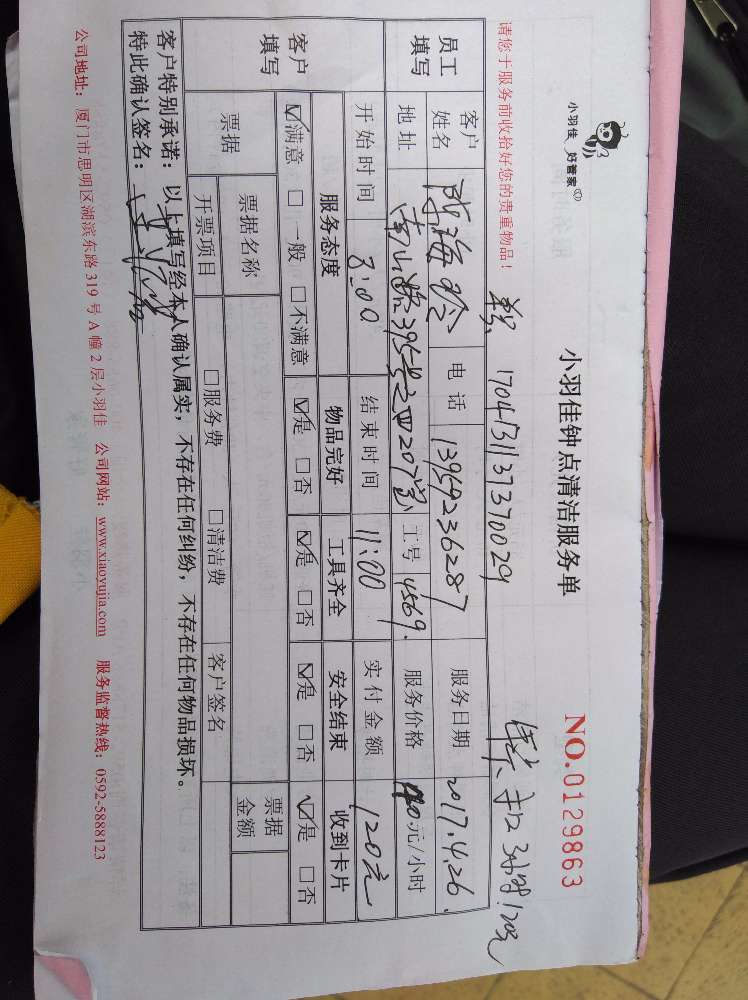 小羽佳 好管家 ®
小羽佳钟点清洁服务单
NO.0129863
请您于服务前收拾好您的贵重物品！
1704131137370029
3小时120元
员工填写 客户姓名 陈海玲 电话 13959236287 服务日期 2017.4.26.
地址 南山路395号之四207室 工号 4569. 服务价格 40元/小时
开始时间 8:00 结束时间 11:00 实付金额 120元
客户填写 服务态度 物品完好 工具齐全 安全结束 收到卡片
☑满意 □一般 □不满意 ☑是 □否 ☑是 □否 ☑是 □否 ☑是 □否
票据 票据名称 票据金额
开票项目 □服务费 □清洁费 客户签名
客户特别承诺：以上填写经本人确认属实，不存在任何纠纷，不存在任何物品损坏。
特此确认签名：
公司地址：厦门市思明区湖滨东路 319 号 A 幢 2 层小羽佳 公司网站：www.xiaoyujia.com 服务监督热线：0592-5888123